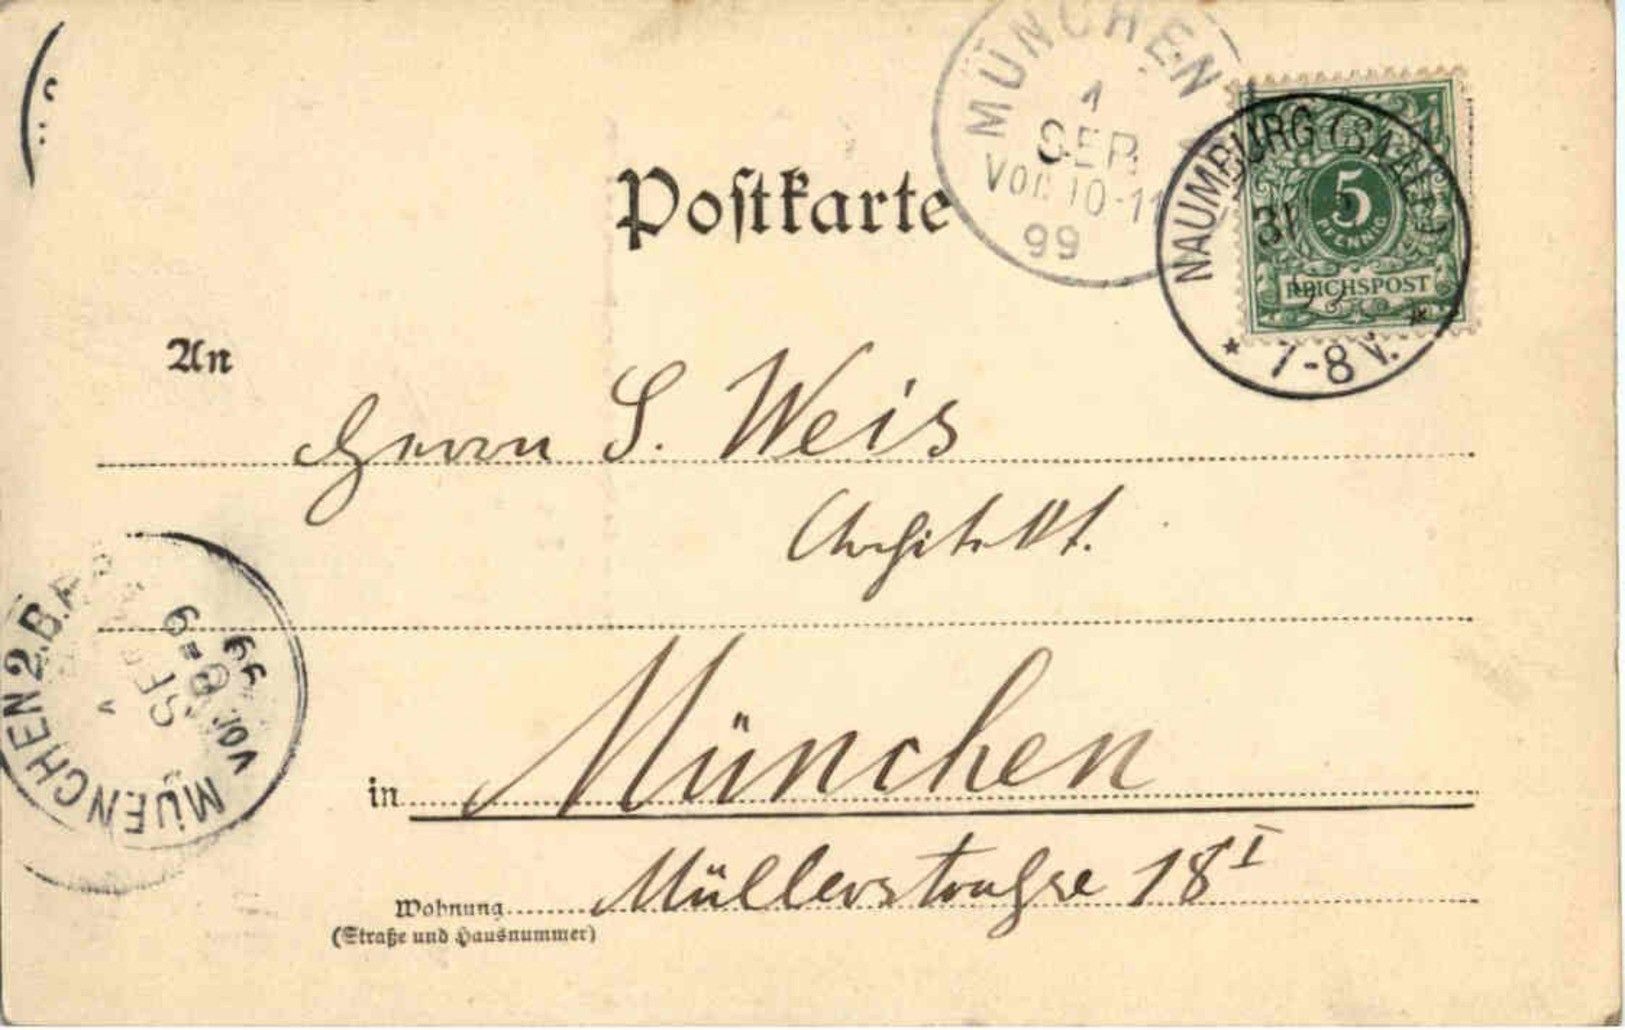 MÜNCHEN
1
SEP.
Vor. 10-11
99
NAUMBURG (SAALE)
31
* 7-8 V. *
5
PFENNIG
REICHSPOST
Postkarte
An
Herrn S. Weis
Architekt.
MUENCHEN 2. B.A.
SEP.
VOR. 8-9
99
in München
Müllerstraße 18 I
Wohnung
(Straße und Hausnummer)